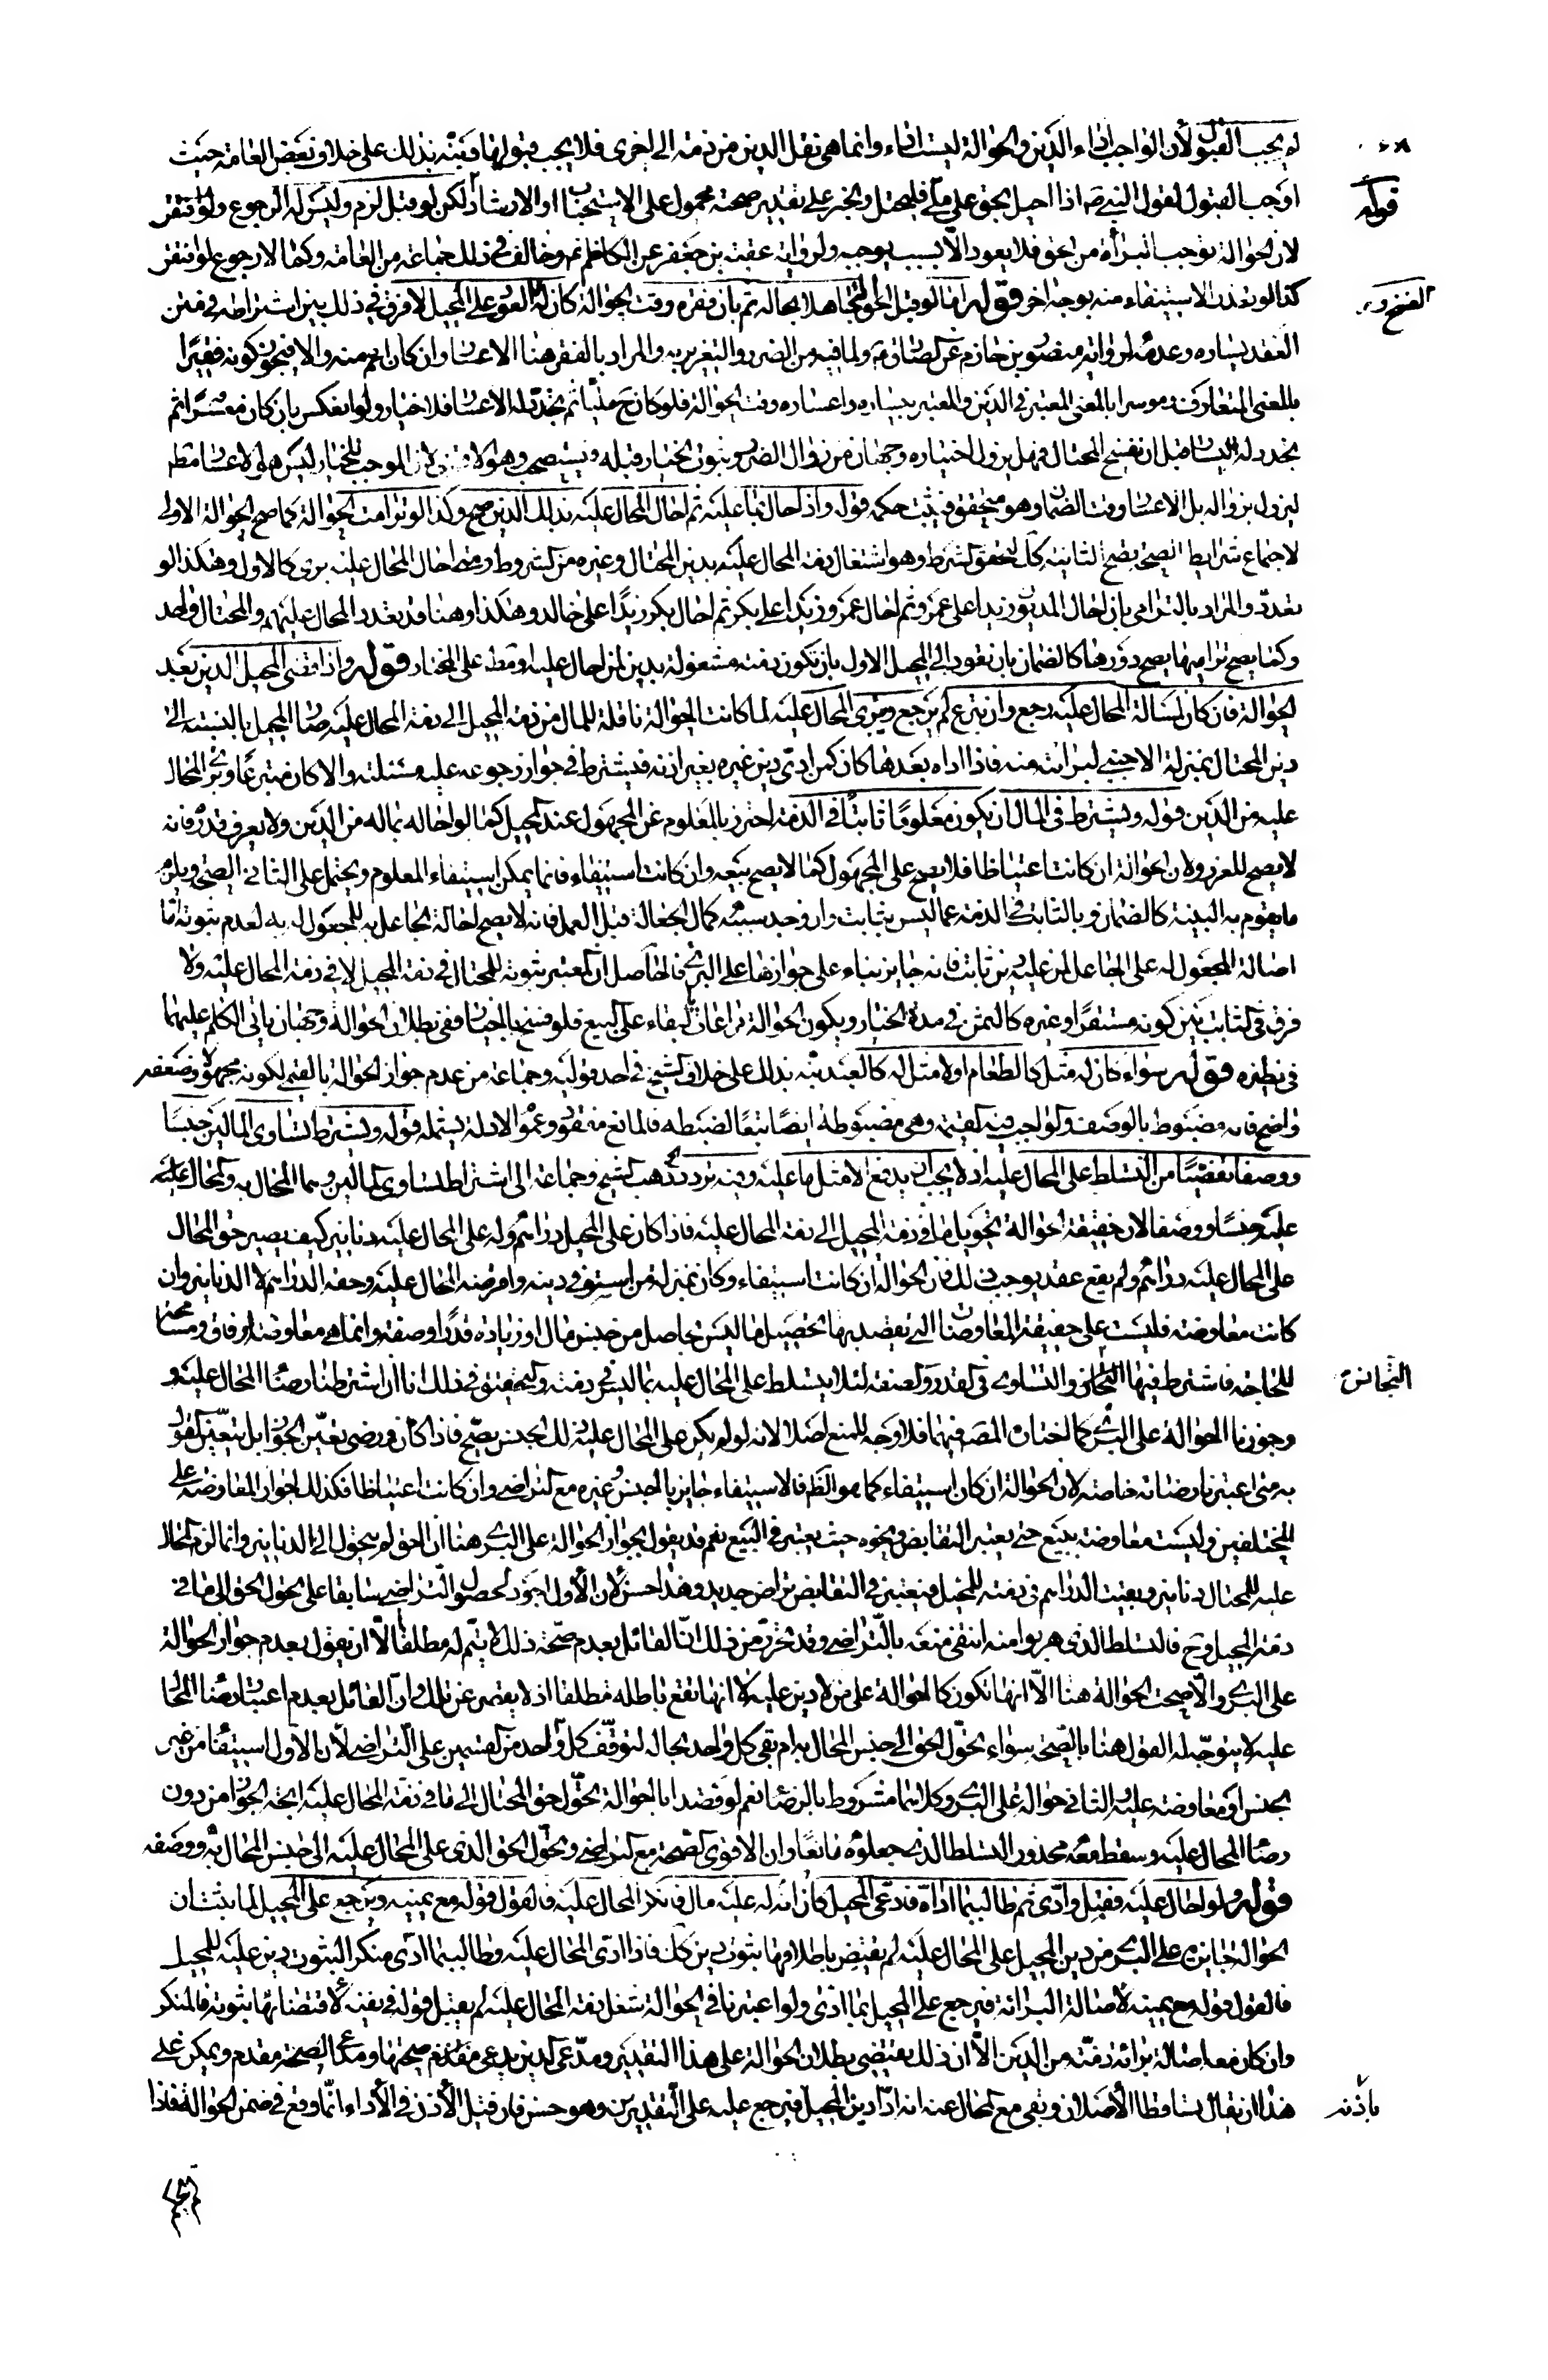 لم يجب القبول لأن الواجب اداء الدين والحوالة ليست اداء وانما هي نقل الدين من ذمة الى اخرى فلا يجب قبولها ونبه بذلك على خلاف بعض العامة حيث
اوجب القبول لقول النبي ص اذا احيل بحق على ملي فليحتل والخبر على تقدير صحته محمول على الاستحباب او الارشاد لكن لو قبل لزم وليس له الرجوع ولو افتقر
قوله
لان الحوالة توجب البرأة من الحق فلا يعود الا بسبب يوجبه ولرواية عقبة بن جعفر عن الكاظم ع وخالف في ذلك جماعة من العامة وكما لا رجوع لو افتقر
كذا لو تعذر الاستيفاء منه بوجه اخر قوله اما لو قبل الحوالة جاهلا بحاله ثم بان فقره وقت الحوالة كان له العود على المحيل لا فرق في ذلك بين اشتراطه في متن
الفسخ و
العقد يساره وعدمه لرواية منصور بن حازم عن الصادق ع ولما فيه من الضرر والتغرير به والمراد بالفقر هنا الاعسار وان كان اعم منه والا فيجوز كونه فقيرا
بالمعنى المتعارف وموسرا بالمعنى المعتبر في الدين والمعتبر بيساره واعساره وقت الحوالة فلو كان ح مليا ثم تجدد له الاعسار فلا خيار ولو انعكس بان كان معسرا ثم
تجدد له اليسار قبل ان يفسخ المحتال فهل يزول اختياره وجهان من زوال الضرر وثبوت الخيار قبله فيستصحب وهو الاقوى لان الموجب للخيار ليس هو الاعسار مطلقا
ليزول بزواله بل الاعسار وقت الضمان وهو متحقق فيثبت حكمه قوله واذا احال بما عليه ثم احال المحال عليه بذلك الدين صح وكذا لو ترامت الحوالة كما صح الحوالة الاولى
لاجتماع شرايط الصحة يصح الثانية كك لتحقق الشرط وهو اشتغال ذمة المحال عليه بدين المحتال وغيره من الشروط ومتى احال المحال عليه برى كالاول وهكذا لو
تعدد والمراد بالترامي بان احال المديون زيدا على عمرو ثم احال عمرو زيدا على بكر ثم احال بكر زيدا على خالد وهكذا وهنا قد تعدد المحال عليهم والمحتال واحد
وكما يصح تراميها يصح دورها كالضمان بان تعود الى المحيل الاول بان تكون ذمته مشغولة بدين لمن احال عليه او مطلقا على المختار قوله واذا قضى المحيل الدين بعد
الحوالة فان كان بمسألة المحال عليه رجع وان تبرع لم يرجع ويبرى المحال عليه لما كانت الحوالة ناقلة للمال من ذمة المحيل الى ذمة المحال عليه صار المحيل بالنسبة الى
دين المحتال بمنزلة الاجنبي لبرائته منه فاذا اداه بعدها كان كمن ادى دين غيره بغير اذنه فيشترط في جواز رجوعه عليه مسئلته والا كان متبرعا ويبرء المحال
عليه من الدين قوله ويشترط في المال ان يكون معلوما ثابتا في الذمة احترز بالمعلوم عن المجهول عند المحيل كما لو احاله بماله من الدين ولا يعرف قدره فانه
لا يصح للغرر ولان الحوالة ان كانت اعتياضا فلا يصح على المجهول كما لا يصح بيعه وان كانت استيفاء فانما يمكن استيفاء المعلوم ويحتمل على الثاني الصحة ويلزم
ما يقوم به البينة كالضمان وبالثابت في الذمة عما ليس بثابت وان وجد سببه كمال الجعالة قبل العمل فانه لا يصح احالة الجاعل به للمجعول له به لعدم ثبوته اما
احالة المجعول له على الجاعل لمن عليه دين ثابت فانه جايز بناء على جوازها على البرئ فالحاصل ان المعتبر ثبوته للمحتال في ذمة المحيل لا في ذمة المحال عليه ولا
فرق في الثابت بين كونه مستقرا وغيره كالثمن في مدة الخيار ويكون الحوالة مراعاة بالبقاء على البيع فلو فسخ بالخيار ففي بطلان الحوالة وجهان ياتي الكلام عليهما
في نظيره قوله سواء كان له مثل كالطعام او لا مثل له كالعبد نبه بذلك على خلاف الشيخ في احد قوليه وجماعة من عدم جواز الحوالة بالقيمي لكونه مجهولا وضعفه
واضح فانه مضبوط بالوصف والواجب فيه القيمة وهي مضبوطة ايضا تبعا لضبطه فالمانع مفقود وعموم الادلة يشمله قوله ويشترط تساوي المالين جنسا
ووصفا تفصيا من التسلط على المحال عليه اذ لا يجب ان يدفع الا مثل ما عليه وفيه تردد ذهب الشيخ وجماعة الى اشتراط تساوي المالين وهما المحال به والمحال عليه
عليه جنسا ووصفا لان حقيقة الحوالة تحويل ما في ذمة المحيل الى ذمة المحال عليه فاذا كان على المحيل دراهم وله على المحال عليه دنانير كيف يصير حق المحال
على المحال عليه دراهم ولم يقع عقد يوجب ذلك فان الحوالة ان كانت استيفاء وكان بمنزلة من استوفى دينه واقرضه المحال عليه وحقه الدراهم لا الدنانير وان
كانت معاوضة فليست على حقيقة المعاوضات التي يقصد بها تحصيل ما ليس بحاصل من جنس مال او زيادة قدر او صفة وانما هي معاوضة ارفاق ومسامحة
للحاجة فاشترط فيها التجانس والتساوي في القدر والصفة لئلا يتسلط على المحال عليه بما ليس في ذمته والتحقيق في ذلك انا ان اشترطنا رضا المحال عليه و
التجانس
وجوزنا الحوالة على البرئ كما اختاره المصنف فيهما فلا وجه للمنع اصلا لانه لو لم يكن على المحال عليه ذلك الجنس يصح فاذا كان ورضي تعين الجواز بل يتعين القول
به متى اعتبرنا رضاه خاصة لان الحوالة ان كان استيفاء كما هو الظ فالاستيفاء جايز بالجنس وغيره مع التراضي وان كانت اعتياضا فكذلك لجواز المعاوضة على
المختلفين وليست معاوضة ببيع حتى يعتبر التقابض ونحوه حيث يعتبر في البيع نعم قد يقول بجواز الحوالة على البرئ هنا ان الحق لم يتحول الى الدنانير وانما لزم المحال
عليه للمحتال دنانير وبقيت الدراهم في ذمته للمحيل فيعتبر في التقابض تراض جديد وهذا حسن لان الاول اجود لحصول التراضي سابقا على تحول الحق الى ما في
ذمة المحيل وح فالتسلط الذي هربوا منه انتفى منعه بالتراضي وقد تحرر من ذلك ان القائل بعدم صحة ذلك لا يتم له مطلقا الا ان يقول بعدم جواز الحوالة
على البرئ والا صحت الحوالة هنا الا انها تكون كالحوالة على من لا دين عليه لا انها تقع باطلة مطلقا اذ لا يقصر عن تلك وان القائل بعدم اعتبار رضا المحال
عليه لا يتوجه له القول هنا بالصحة سواء تحول الحق الى جنس المحال به ام بقي كل واحد بحاله لتوقف كل واحد من القسمين على التراضي لان الاول استيفاء من غير
الجنس او معاوضة عليه والثاني حوالة على البرئ وكلاهما مشروط بالرضا نعم لو قصدا بالحوالة تحول حق المحتال الى ما في ذمة المحال عليه اتجه الجواز من دون
رضا المحال عليه وسقط معه محذور التسلط الذي جعلوه مانعا وان الاقوى الصحة مع التراضي وتحول الحق الذي على المحال عليه الى جنس المحال به ووصفه
قوله ولو احال عليه فقبل وادى ثم طالب بما اداه فادعى المحيل كان انه له عليه مال فانكر المحال عليه فالقول قوله مع يمينه ويرجع على المحيل لما يثبت ان
الحوالة جايزة على البرئ من دين المحيل على المحال عليه لم يقتض باطلاقها ثبوت دين كك فاذا ادى المحال عليه وطالب بما ادى منكرا لثبوت دين عليه للمحيل
فالقول قوله مع يمينه لاصالة البرائة فيرجع على المحيل بما ادى ولو اعتبرنا في الحوالة شغل ذمة المحال عليه لم يقبل قوله في نفيه لاقتضائها ثبوته فالمنكر
وان كان معه اصالة برائة ذمته من الدين الا ان ذلك يقتضي بطلان الحوالة على هذا التقدير ومدعي الدين يدعي صحتها ومدعي الصحة مقدم ويمكن على
هذا ان يقال تساقطا الاصلان وبقي مع المحال عنه انه ادا دين المحيل فيرجع عليه على التقديرين وهو حسن فان قيل الاذن في الاداء انما وقع في ضمن الحوالة فاذا
باذنه